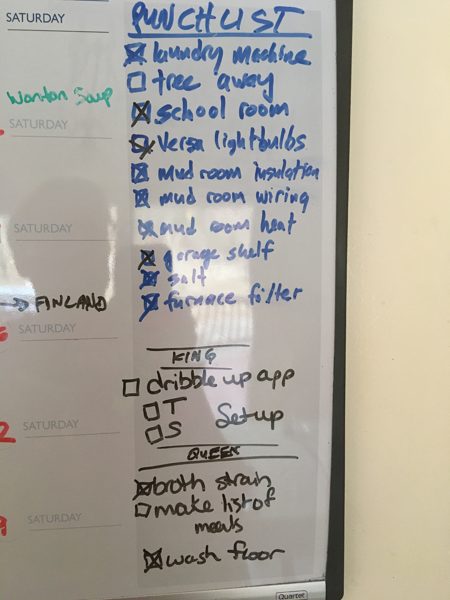 SATURDAY
PUNCHLIST
laundry machine
tree away
Wonton Soup
school room
SATURDAY
Versa lightbulbs
mud room insulation
mud room wiring
SATURDAY
mud room heat
garage shelf
salt
→ FINLAND
furnace filter
SATURDAY
KING
dribble up app
T
S Setup
2
SATURDAY
QUEEN
broth strain
make list of
meals
SATURDAY
wash floor
Quartet